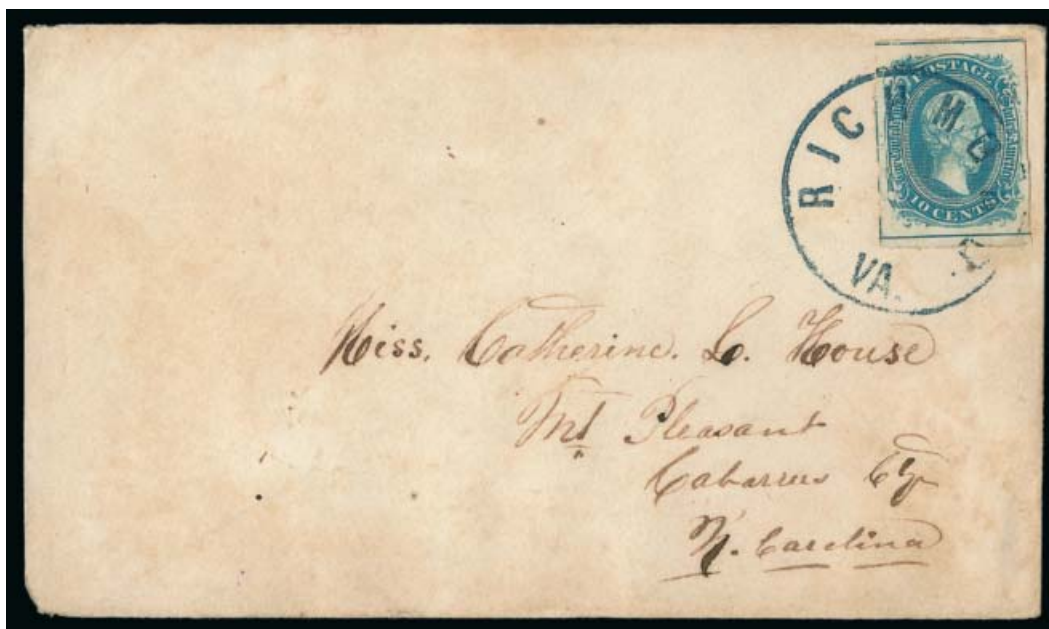 POSTAGE
10 CENTS
RICHMO
VA.
Miss. Catherine. L. House
Mt Pleasant
Cabarrus Cty
N. Carolina